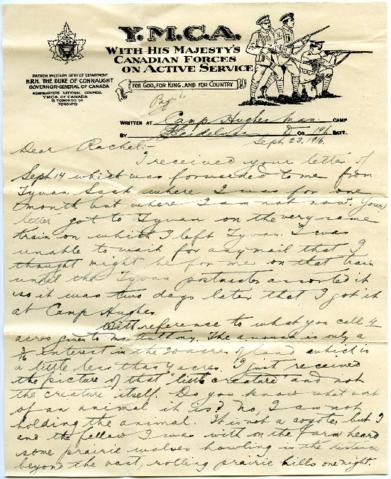 Y.M.C.A.
WITH HIS MAJESTY'S
CANADIAN FORCES
ON ACTIVE SERVICE
PATRON MILITARY SERVICE DEPARTMENT
H.R.H. THE DUKE OF CONNAUGHT
GOVERNOR-GENERAL OF CANADA
HEADQUARTERS NATIONAL COUNCIL
Y.M.C.A. OF CANADA
TORONTO
FOR GOD, FOR KING, AND FOR COUNTRY
WRITTEN AT Camp Hughes Man CAMP
BY Co BATT.
Sept. 23, 1916.
Dear Rachel:-
I received your letter of
Sept 14 which was forwarded to me from
Tyvan Sask where I was for one
month but where I am not now. Your
letter got to Tyvan on the very same
train on which I left Tyvan. I was
unable to wait for any mail that I
thought might be for me on that train
until the Tyvan postmaster assorted it
so it was two days later that I got it
at Camp Hughes.
With reference to what you call 4
acres given to me
interest in the 20 acres of land which is
a little less than 4 acres. I just received
the picture of that little creature and not
the creature itself. Do you know what sort
of an animal it is? No, I am not
holding the animal. It is not a coyote but I
and the fellow I was with on the farm heard
some prairie wolves howling in the distance
beyond the vast, rolling prairie hills one night.